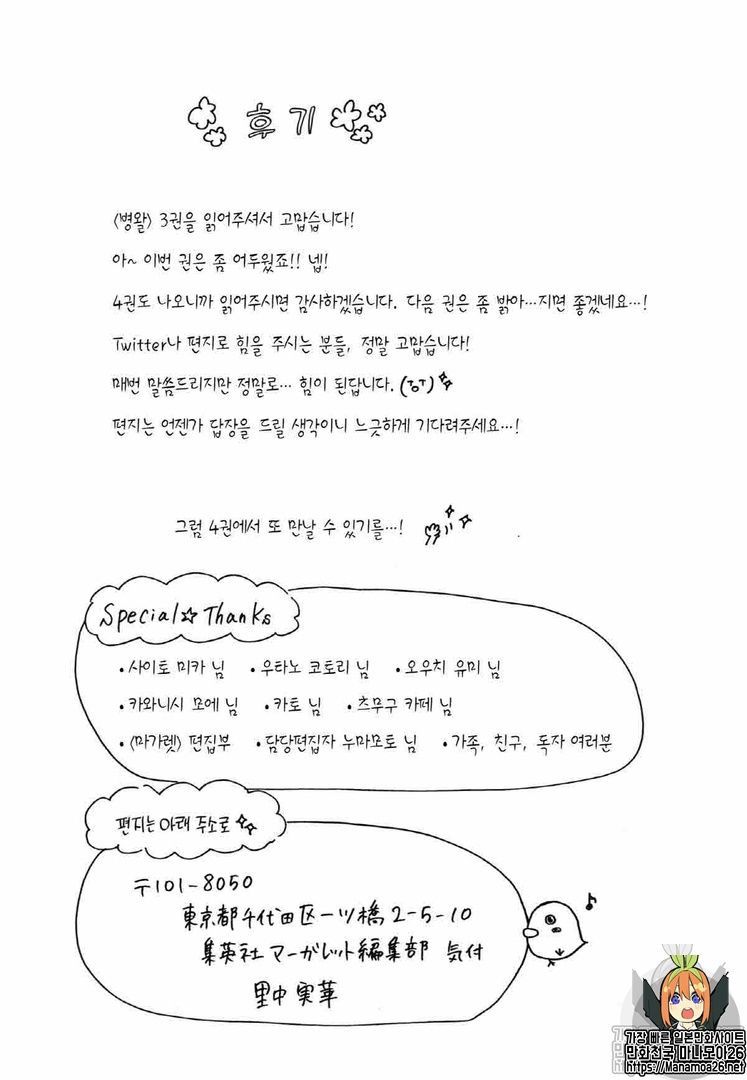 후기
〈병왈〉 3권을 읽어주셔서 고맙습니다!
아~ 이번 권은 좀 어두웠죠!! 넵!
4권도 나오니까 읽어주시면 감사하겠습니다. 다음 권은 좀 밝아…지면 좋겠네요…!
Twitter나 편지로 힘을 주시는 분들, 정말 고맙습니다!
매번 말씀드리지만 정말로… 힘이 된답니다.
편지는 언젠가 답장을 드릴 생각이니 느긋하게 기다려주세요…!
그럼 4권에서 또 만날 수 있기를…!
Special☆Thanks
•사이토 미카 님 •우타노 코토리 님 •오우치 유미 님
•카와니시 모에 님 •카토 님 •츠무구 카페 님
•〈마가렛〉 편집부 •담당편집자 누마모토 님 •가족, 친구, 독자 여러분
편지는 아래 주소로
〒101-8050
東京都千代田区一ツ橋2-5-10
集英社マーガレット編集部 気付
里中実華
가장 빠른 일본만화사이트
만화천국 마나모아26
https://Manamoa26.net